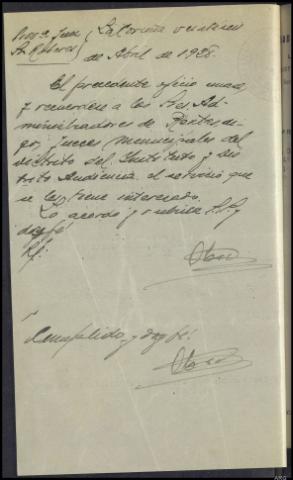 Prov.ª Juez La Coruña veintiseis
Sr. de Abril de 1938.
El precedente oficio unase
y recuerdese a los Sres. Ad-
ministradores de Rentas
Jueces Municipales del
Distrito del Instituto y Dis
trito Audiencia el servicio que
se les tiene interesado.
Lo acordó y rubrica S.Sª
doy fé
Cumplido, y doy fé.